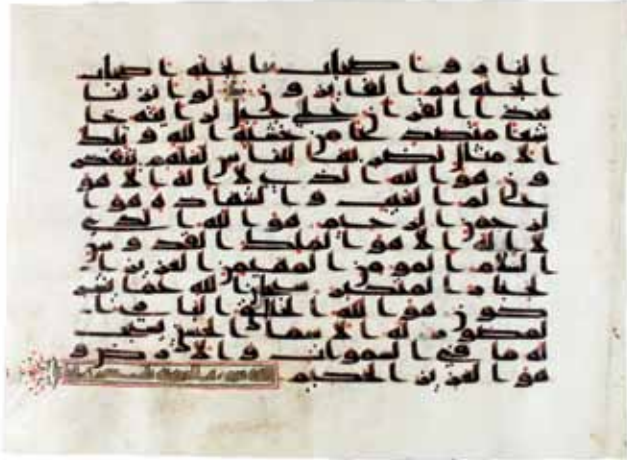 النار واصحاب الجنه اصحاب
الجنه هم الفايزون لو انزلنا
هذا القران علي جبل لرايته خا
شعا متصدعا من خشيه الله وتلك
الامثال نضربها للناس لعلهم يتفكر
ون هو الله الذي لا اله الا هو
علم الغيب والشهاده هو ا
لرحمن الرحيم هو الله الذي
لا اله الا هو الملك القدوس
السلم المومن المهيمن العزيز ا
لجبار المتكبر سبحن الله عما يشر
كون هو الله الخالق الباري ا
لمصور له الاسما الحسني يسبح
له ما في السموات والارض و
هو العزيز الحكيم